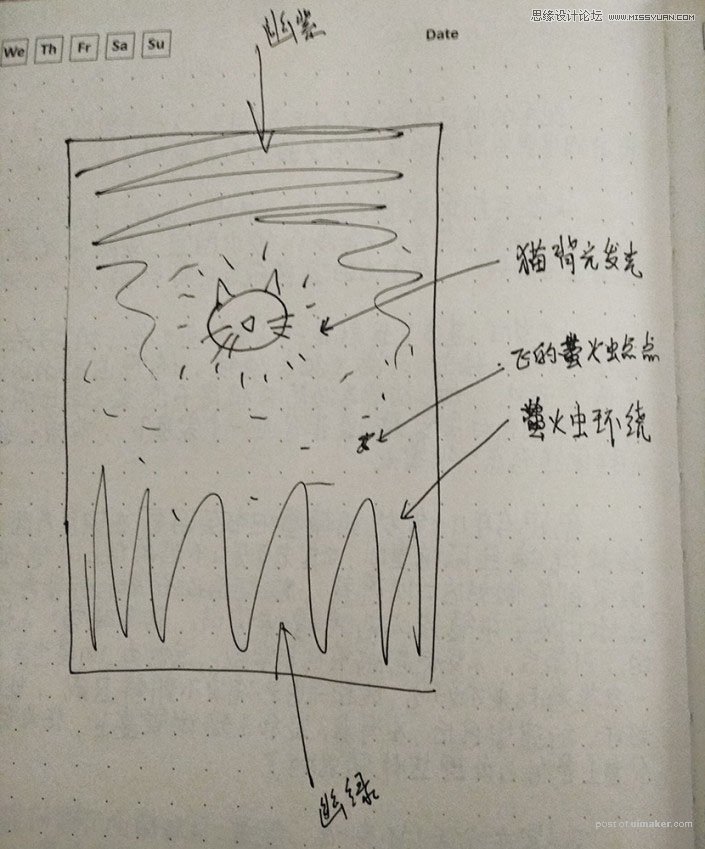 思缘设计论坛 WWW.MISSYUAN.COM
幽紫
Date
We Th Fr Sa Su
猫背光发光
飞的萤火虫点点
萤火虫环绕
幽绿
post of uimaker.com